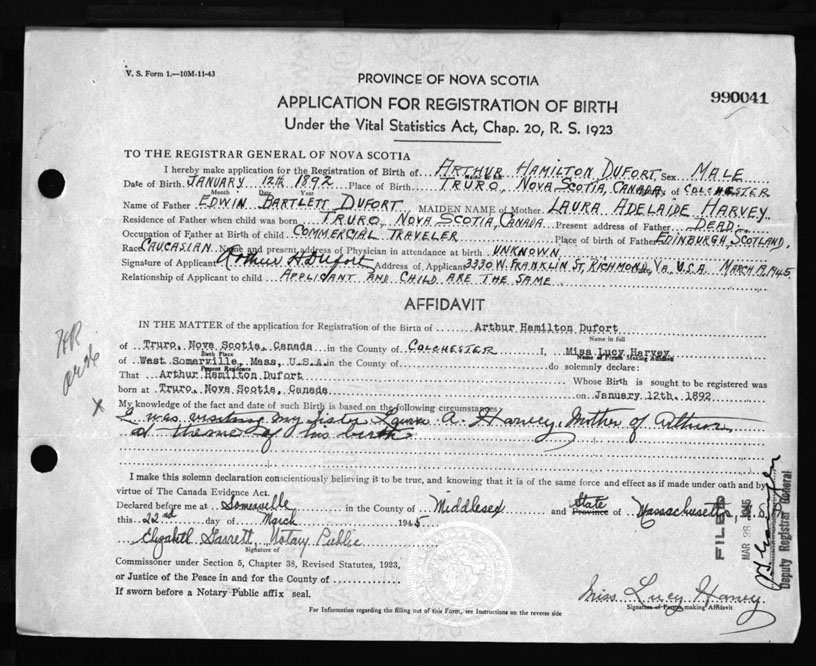 V. S. Form 1.—10M-11-43
PROVINCE OF NOVA SCOTIA
990041
APPLICATION FOR REGISTRATION OF BIRTH
Under the Vital Statistics Act, Chap. 20, R. S. 1923
TO THE REGISTRAR GENERAL OF NOVA SCOTIA
I hereby make application for the Registration of Birth of ARTHUR HAMILTON DUFORT Sex MALE
Date of Birth JANUARY 12TH 1892 Place of Birth TRURO, NOVA SCOTIA, CANADA of COLCHESTER
Month Date Year
Name of Father EDWIN BARTLETT DUFORT MAIDEN NAME of Mother LAURA ADELAIDE HARVEY
Residence of Father when child was born TRURO, NOVA SCOTIA, CANADA Present address of Father DEAD
Occupation of Father at Birth of child COMMERCIAL TRAVELER Place of birth of Father EDINBURGH, SCOTLAND,
Race CAUCASIAN Name and present address of Physician in attendance at birth UNKNOWN
Signature of Applicant Arthur H Dufort Address of Applicant 3330 W. FRANKLIN ST, RICHMOND, VA. U.S.A. MARCH 19, 1945
Relationship of Applicant to child APPLICANT AND CHILD ARE THE SAME
AFFIDAVIT
IN THE MATTER of the application for Registration of the Birth of Arthur Hamilton Dufort
Name in full
of Truro, Nova Scotia, Canada in the County of COLCHESTER I, Miss Lucy Harvey
Birth Place Name of Person Making Affidavit
of West Somerville, Mass, U.S.A. in the County of do solemnly declare:
Present Residence
That Arthur Hamilton Dufort Whose Birth is sought to be registered was
born at Truro, Nova Scotia, Canada on January 12th, 1892
X
My knowledge of the fact and date of such Birth is based on the following circumstances
I was visiting my sister Laura A. Harvey, Mother of Arthur
at time of his birth
I make this solemn declaration conscientiously believing it to be true, and knowing that it is of the same force and effect as if made under oath and by
virtue of The Canada Evidence Act.
Declared before me at Somerville in the County of Middlesex and State Province of Massachusetts,
this 22nd day of March 1945
Elizabeth Garrett, Notary Public
Signature of
Commissioner under Section 5, Chapter 38, Revised Statutes, 1923,
or Justice of the Peace in and for the County of
If sworn before a Notary Public affix seal.
Miss Lucy Harvey
Signature of Person making Affidavit
For Information regarding the filling out of this Form, see Instructions on the reverse side
FILED
MAR 28 1945
Deputy Registrar General